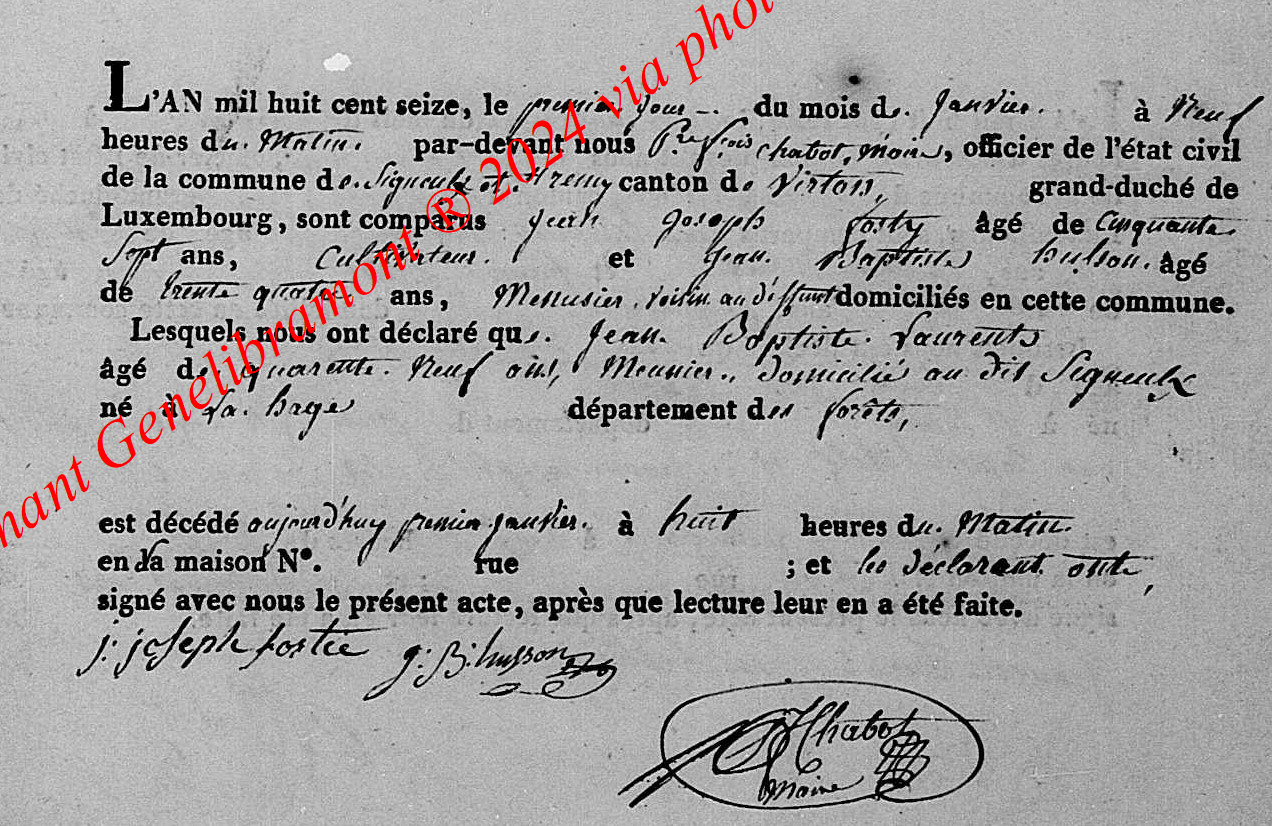 L'AN mil huit cent seize, le premier jour du mois de Janvier. à Neuf
heures du Matin. par-devant nous Chabot, Maire, officier de l'état civil
de la commune de Signeulx et canton de Virton, grand-duché de
Luxembourg, sont comparus Jean Joseph fosty âgé de Cinquante
Sept ans, Cultivateur. et Jean Baptiste husson. âgé
de trente quatre ans, Menusier, voisin au déffunt domiciliés en cette commune.
Lesquels nous ont déclaré que Jean Baptiste Laurents
âgé de quarente Neuf ans, Meunier, domicilié au dit Signeulx
né à La hage département des forêts,
est décédé aujourd'huy premier janvier à huit heures du Matin
en sa maison N°. rue ; et les déclarant onte,
signé avec nous le présent acte, après que lecture leur en a été faite.
j: joseph fostie g: B: husson
Chabot
Maire
nant Genelibramont ® 2024 via phot